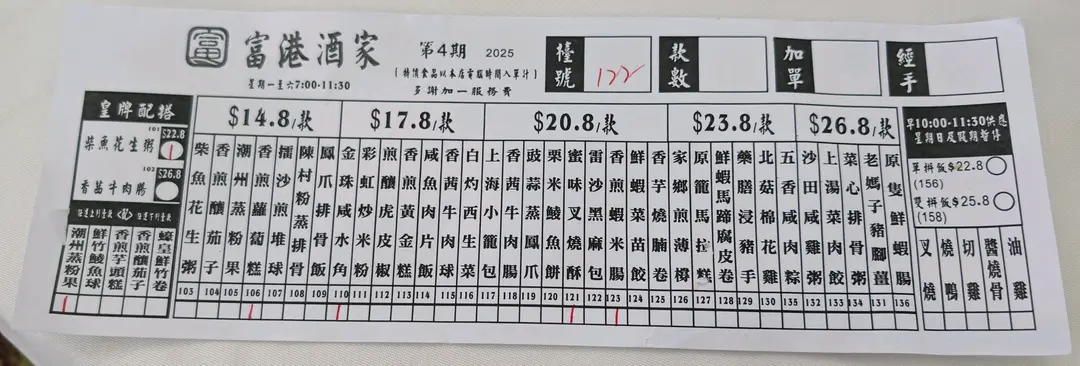 富 富港酒家
第4期 2025
星期一至六7:00-11:30
(特價食品以本店電腦時間入單計)
多謝加一服務費
檯號 122
款數
加單
經手
皇牌配搭
101 $22.8
柴魚花生粥
102 $26.8
香茜牛肉腸
任選上列壹款 任選下列壹款
潮州蒸粉果
鮮竹鯪魚球
香煎芋頭糕
香煎釀茄子
蠔皇鮮竹卷
$14.8/款
柴魚花生粥 103
香煎釀茄子 104
潮州蒸粉果 105
香煎蘿蔔糕 106
擂沙煎堆球 107
陳村粉蒸排骨 108
鳳爪排骨飯 109
$17.8/款
金珠咸水角 110
彩虹炒米粉 111
煎釀虎皮椒 112
香煎黃金糕 113
咸魚肉片飯 114
香茜牛肉球 115
白灼西生菜 116
$20.8/款
上海小籠包 117
香茜牛肉腸 118
豉蒜蒸鳳爪 119
蔬米鯪魚餅 120
蜜味叉燒酥 121
雷沙黑麻包 122
香煎蝦米腸 123
鮮田菜苗餃 124
蝦芋腩卷 125
$23.8/款
家鄉煎薄撐 126
原籠馬拉糕 127
鮮蝦蹄腐皮卷 128
藥膳浸豬手 129
北菇棉花雞 130
五香咸肉粽 135
$26.8/款
沙田咸雞粥 132
上湯菜肉餃 133
菜心排骨 134
老媽子豬腳薑 131
原隻鮮蝦腸 136
單10:00-11:30供應
星期日及假期暫停
單拼飯$22.8
(156)
雙拼飯$25.8
(158)
叉燒
燒鴨
切雞
醬燒骨
油雞